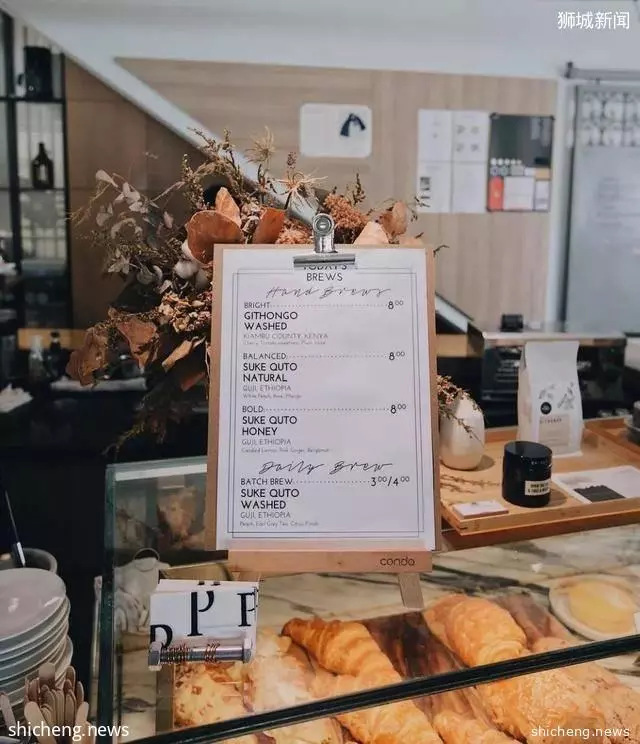 狮城新闻
TODAY'S
BREWS
Hand Brews
BRIGHT 8⁰⁰
GITHONGO
WASHED
KIAMBU COUNTY, KENYA
BALANCED 8⁰⁰
SUKE QUTO
NATURAL
GUJI, ETHIOPIA
White Peach, Rose, Mango
BOLD 8⁰⁰
SUKE QUTO
HONEY
GUJI, ETHIOPIA
Candied Lemon, Pink Ginger, Bergamot
Daily Brew
BATCH BREW 3⁰⁰/4⁰⁰
SUKE QUTO
WASHED
GUJI, ETHIOPIA
Peach, Earl Grey Tea, Citrus Finish
conda
P P
shicheng.news
shicheng.news